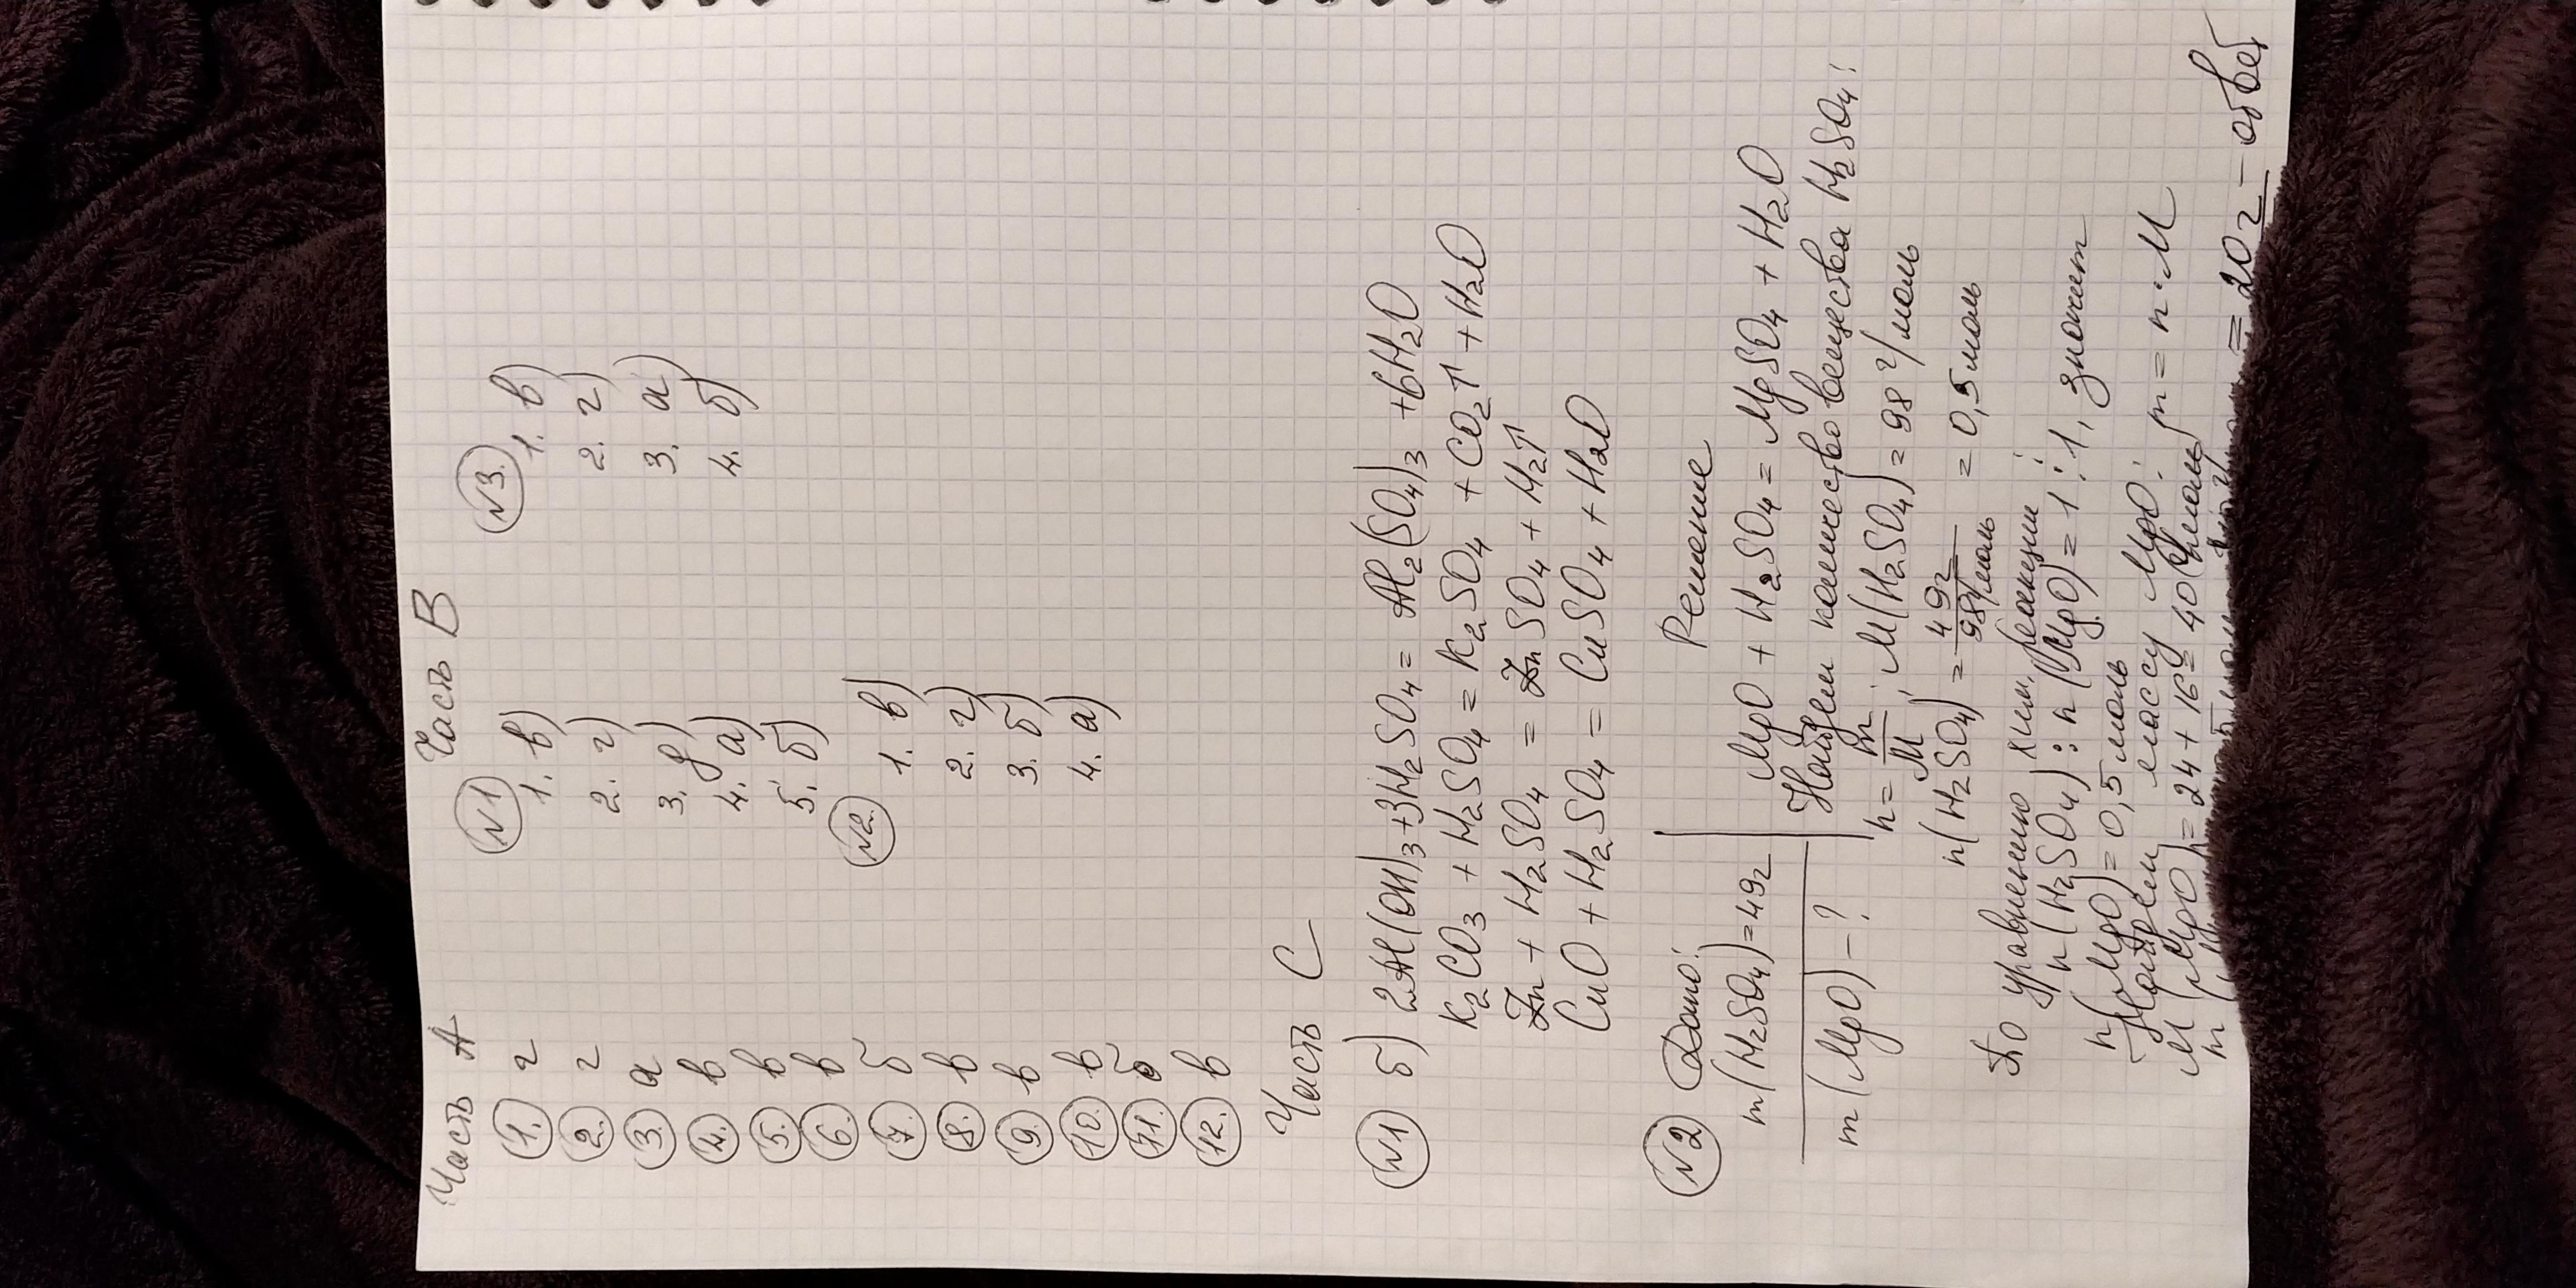 Часть А
1. г
2. г
3. а
4. в
5. в
6. в
7. б
8. в
9. в
10. в
11. б
12. в
Часть В
N1
1. в)
2. г)
3. д)
4. а)
5. б)
N2.
1. в)
2. г)
3. б)
4. а)
N3.
1. в)
2. г)
3. а)
4. б)
Часть С
N1 б) 2Al(OH)3+3H2SO4 = Al2(SO4)3 +6H2O
K2CO3 + H2SO4 = K2SO4 + CO2↑ + H2O
Zn + H2SO4 = ZnSO4 + H2↑
CuO + H2SO4 = CuSO4 + H2O
N2 Дано:
m(H2SO4)=49г
m(MgO)-?
Решение
MgO + H2SO4 = MgSO4 + H2O
Найдем количество вещества H2SO4:
n = m/M; M(H2SO4) = 98 г/моль
n(H2SO4) = 49г/98г/моль = 0,5моль
По уравнению хим. реакции:
n(H2SO4) : n(MgO) = 1 : 1, значит
n(MgO) = 0,5 моль
Найдем массу MgO: m = n·M
M(MgO) = 24 + 16 = 40(г/моль)
= 20г - ответ